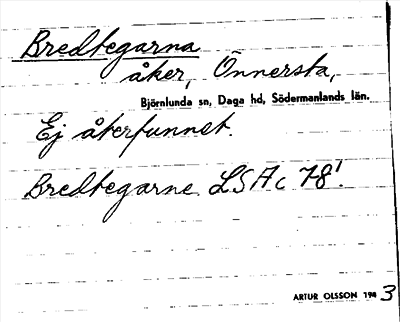 Bredtegarna
åker, Önnersta,
Björnlunda sn, Daga hd, Södermanlands län.
Ej återfunnet.
Bredtegarne LSAc 78'.
ARTUR OLSSON 1943